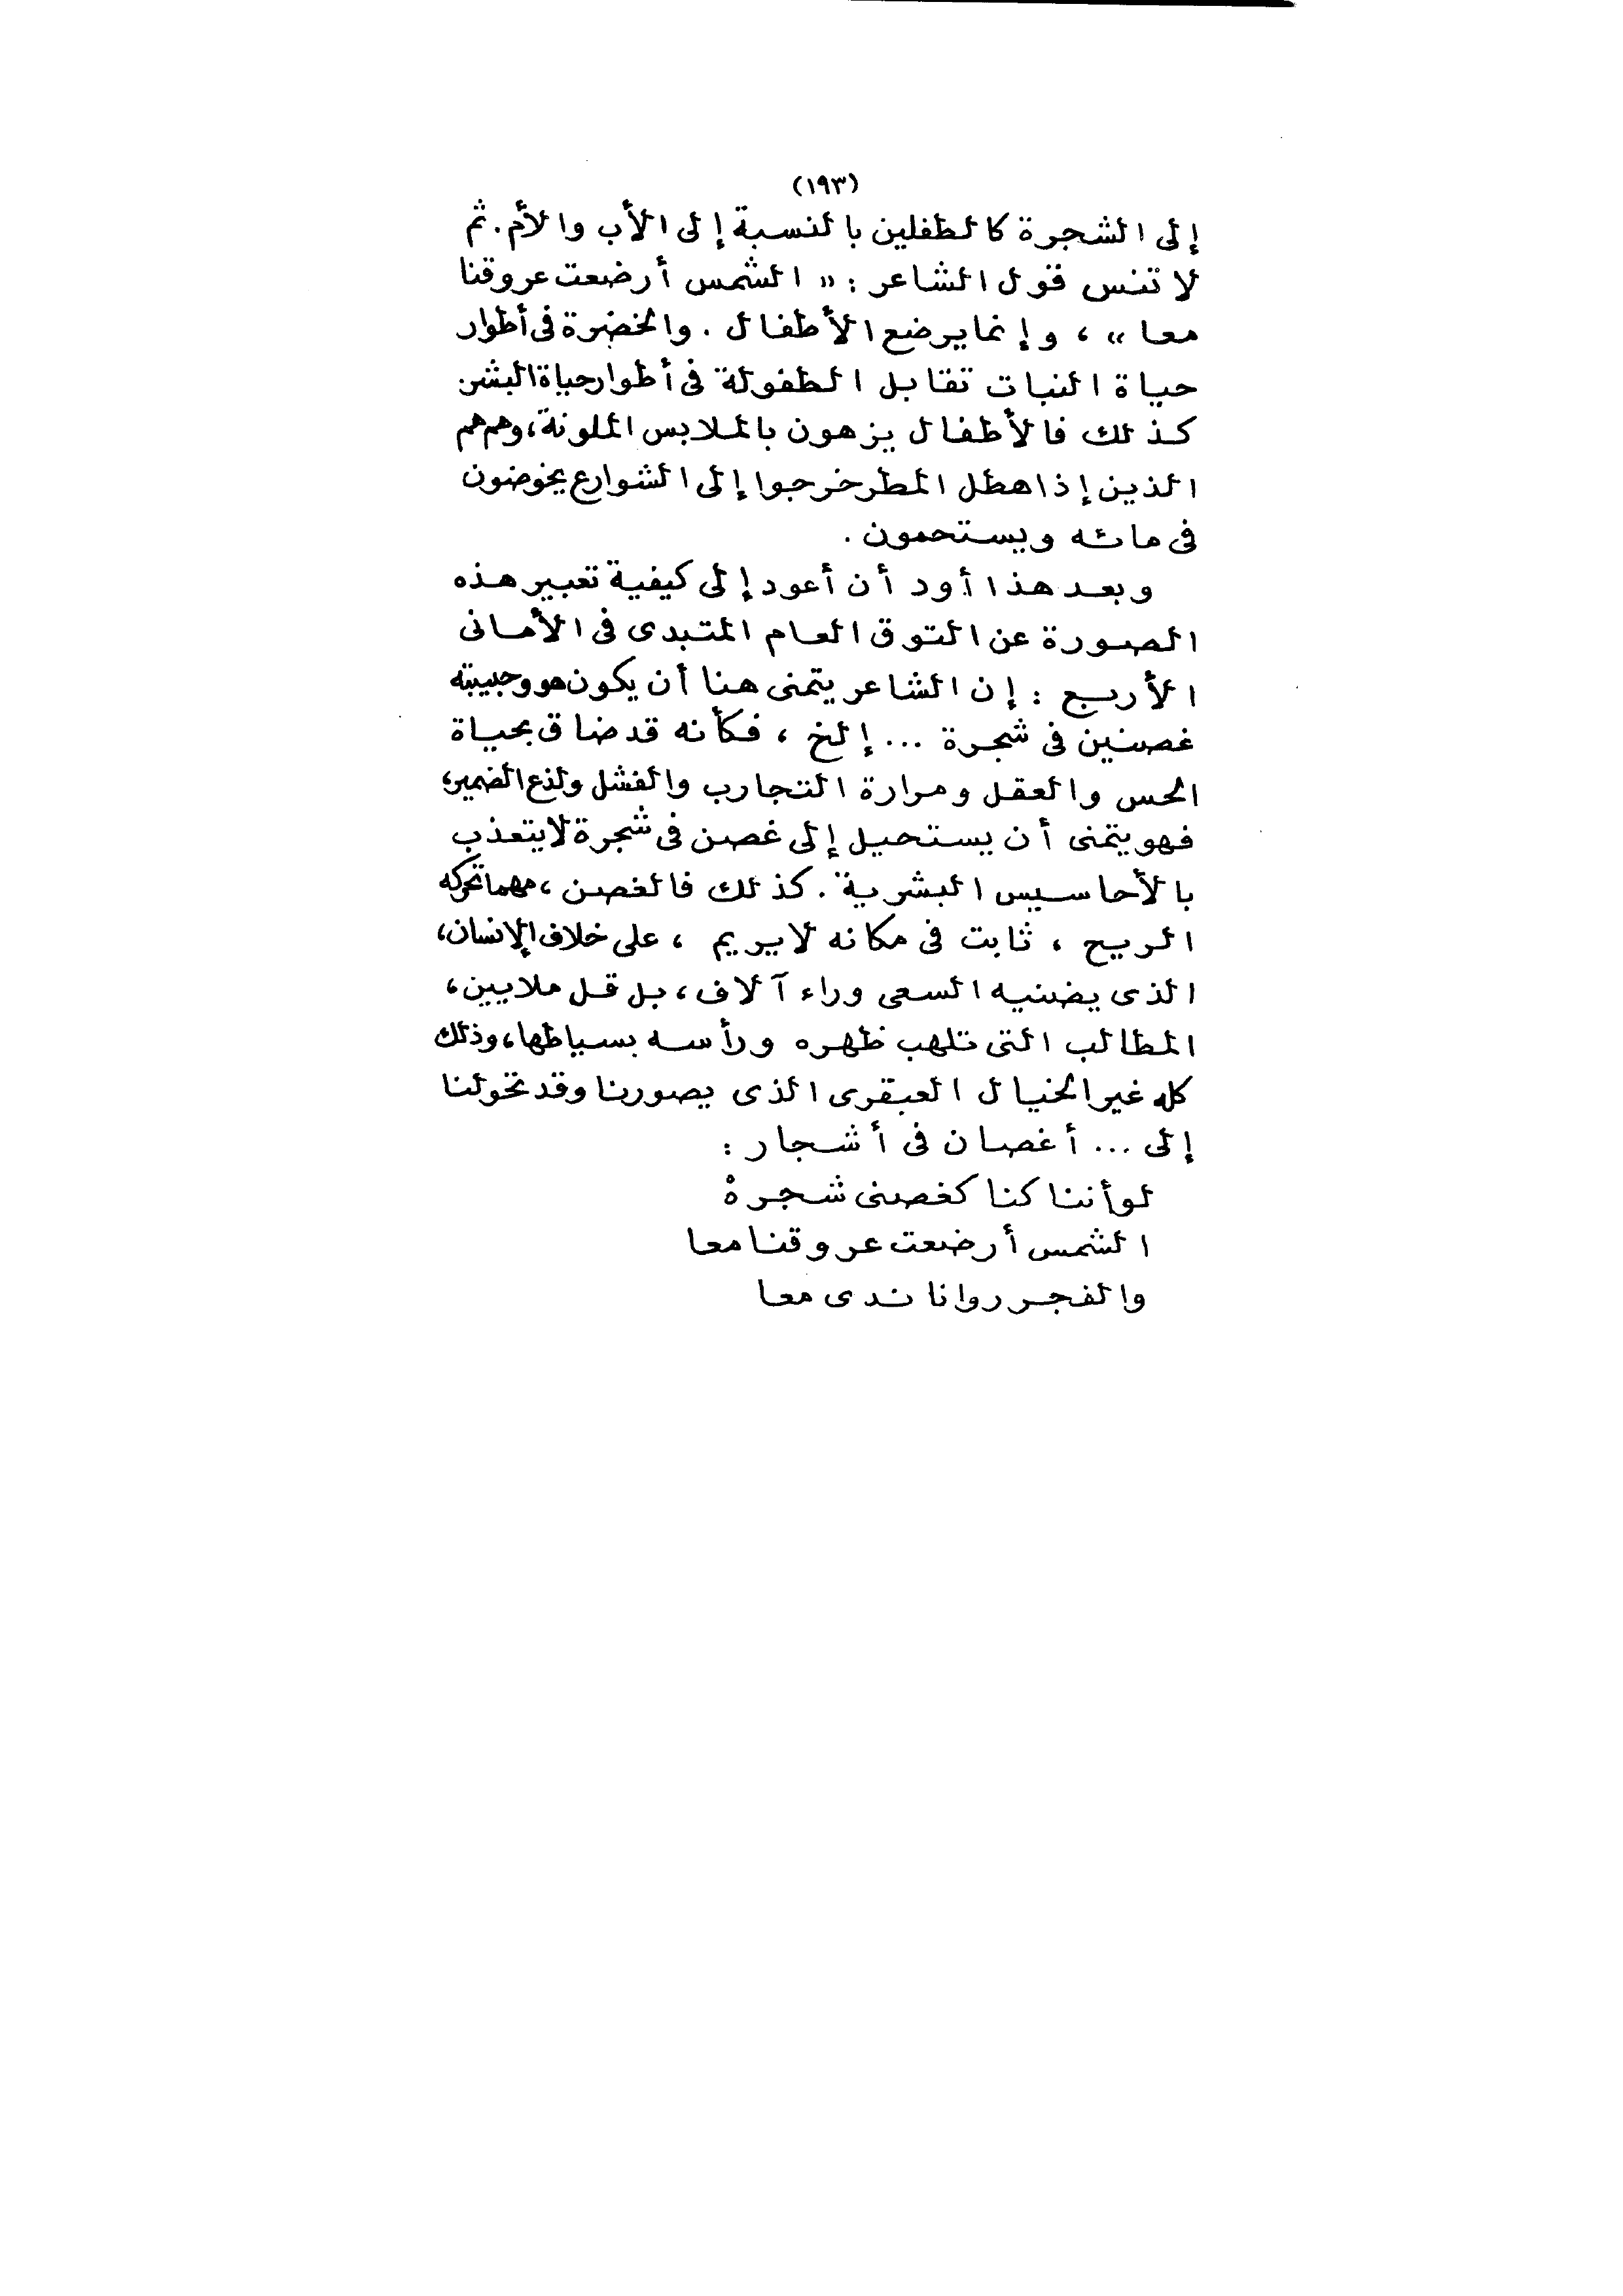 (١٩٣)
إلى الشجرة كالطفلين بالنسبة إلى الأب والأم. ثم
لا تنس قول الشاعر : « الشمس أرضعت عروقنا
معا » ، وإنما يرضع الأطفال . والخضرة فى أطوار
حياة النبات تقابل الطفولة فى أطوار حياة البشر.
كذلك فالأطفال يزهون بالملابس الملونة، وهم هم
الذين إذا هطل المطر خرجوا إلى الشوارع يخوضون
فى مائه ويستحمون .
وبعد هذا أود أن أعود إلى كيفية تعبير هذه
الصورة عن التوق العام المتبدى فى الأمانى
الأربع : إن الشاعر يتمنى هنا أن يكون هو وحبيبته
غصنين فى شجرة ... إلخ ، فكأنه قد ضاق بحياة
الحس والعقل ومرارة التجارب والفشل ولذع الضمير،
فهو يتمنى أن يستحيل إلى غصن فى شجرة لا يتعذب
بالأحاسيس البشرية . كذلك فالغصن ، مهما تحركه
الريح ، ثابت فى مكانه لا يريم ، على خلاف الإنسان،
الذى يضنيه السعى وراء آلاف ، بل قل ملايين،
المطالب التى تلهب ظهره ورأسه بسياطها، وذلك
كله غير الخيال العبقرى الذى يصورنا وقد تحولنا
إلى ... أغصان فى أشجار :
لو أننا كنا كغصنى شجرهْ
الشمس أرضعت عروقنا معا
والفجر روانا ندى معا